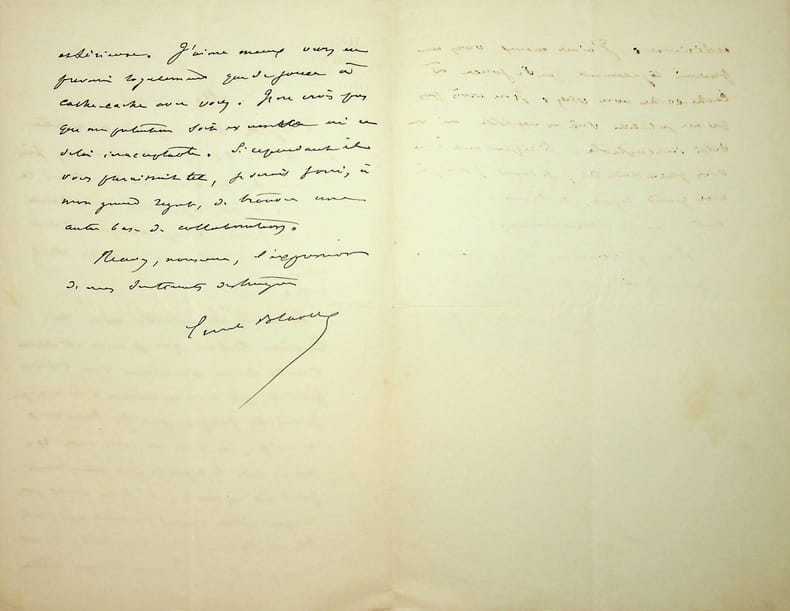 extérieure. J'aime mieux vous en
prévenir loyalement que de jouer à
cache-cache avec vous. Je ne crois pas
que ma prétention soit ni ce
délai inacceptable. Si cependant ils
vous paraissaient tel, je serais forcé, à
mon grand regret, de trouver une
autre base de collaboration.
Recevez, monsieur, l'expression
de mes sentiments distingués
Emile Blavet